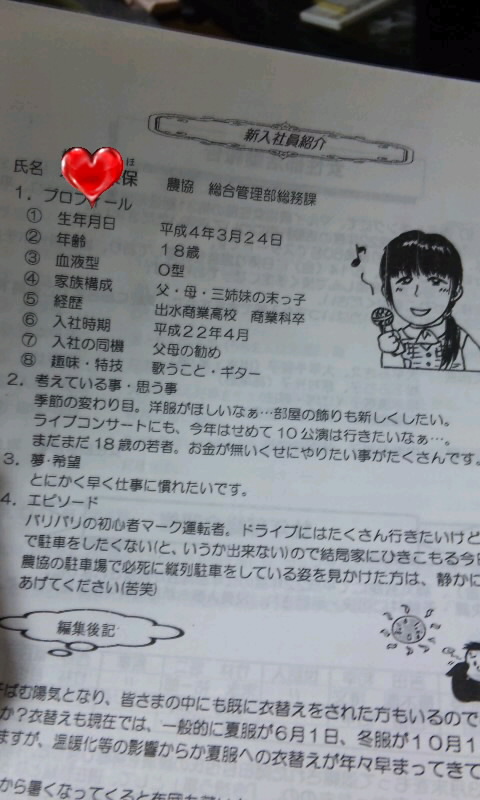 新入社員紹介
氏名 保 ほ 農協 総合管理部総務課
1．プロフィール
① 生年月日 平成4年3月24日
② 年齢 18歳
③ 血液型 O型
④ 家族構成 父・母・三姉妹の末っ子
⑤ 経歴 出水商業高校 商業科卒
⑥ 入社時期 平成22年4月
⑦ 入社の同機 父母の勧め
⑧ 趣味・特技 歌うこと・ギター
2．考えている事・思う事
季節の変わり目。洋服がほしいなぁ…部屋の飾りも新しくしたい。
ライブコンサートにも、今年はせめて10公演は行きたいなぁ…。
まだまだ18歳の若者。お金が無いくせにやりたい事がたくさんです。
3．夢・希望
とにかく早く仕事に慣れたいです。
4．エピソード
バリバリの初心者マーク運転者。ドライブにはたくさん行きたいけど
で駐車をしたくない(と、いうか出来ない)ので結局家にひきこもる今日
農協の駐車場で必死に縦列駐車をしている姿を見かけた方は、静かに
あげてください(苦笑)
編集後記
ばむ陽気となり、皆さまの中にも既に衣替えをされた方もいるので
か？衣替えも現在では、一般的に夏服が6月1日、冬服が10月1
ますが、温暖化等の影響からか夏服への衣替えが年々早まってきて
から暑くなってくると